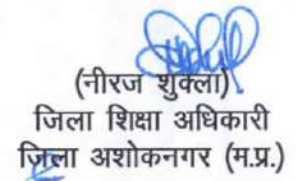 (नीरज शुक्ला)
जिला शिक्षा अधिकारी
जिला अशोकनगर (म.प्र.)